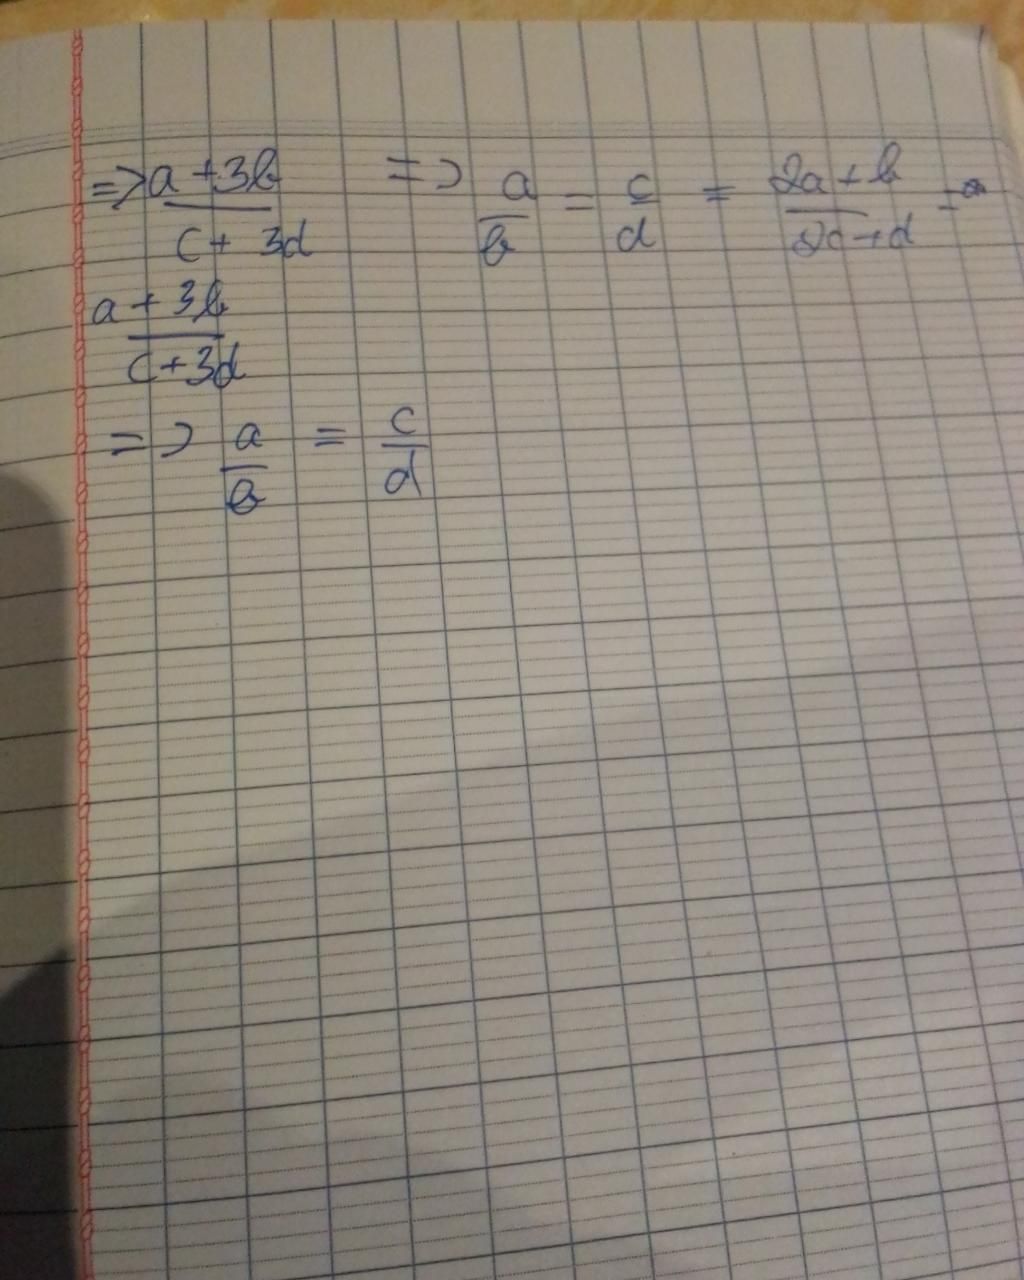 => a + 3b / c + 3d => a / b = c / d = 2a + b / 2c + d =
a + 3b / c + 3d
=> a / b = c / d